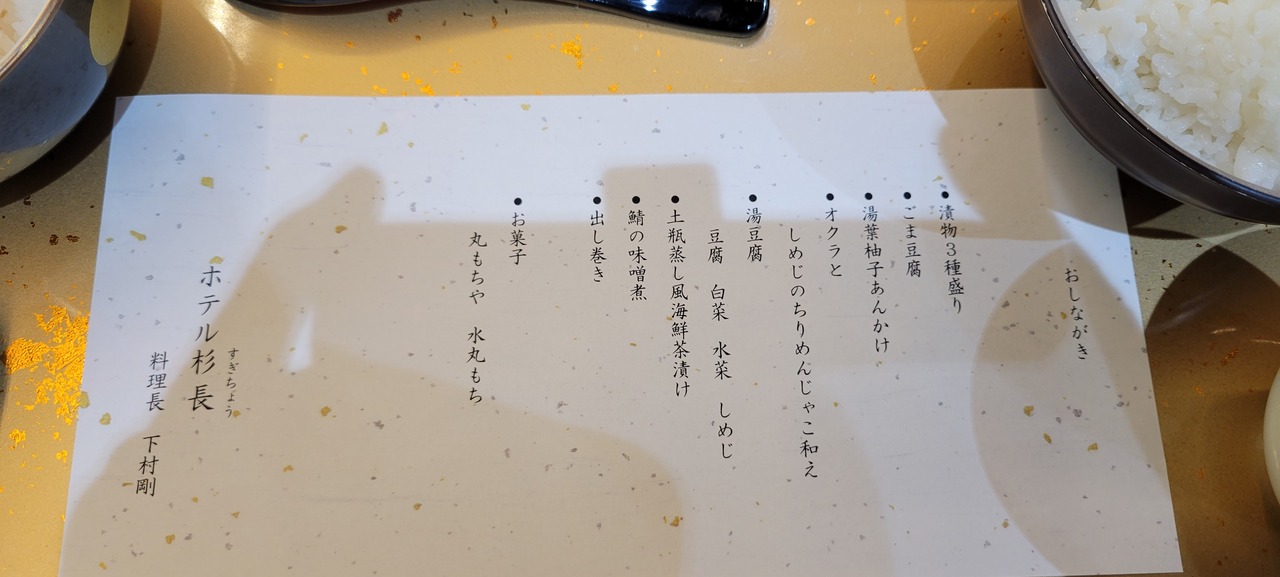 おしながき
●漬物3種盛り
●ごま豆腐
●湯葉柚子あんかけ
●オクラと
しめじのちりめんじゃこ和え
●湯豆腐
豆腐　白菜　水菜　しめじ
●土瓶蒸し風海鮮茶漬け
●鯖の味噌煮
●出し巻き
●お菓子
丸もちや　水丸もち
すぎちょう
ホテル杉長
料理長　下村剛